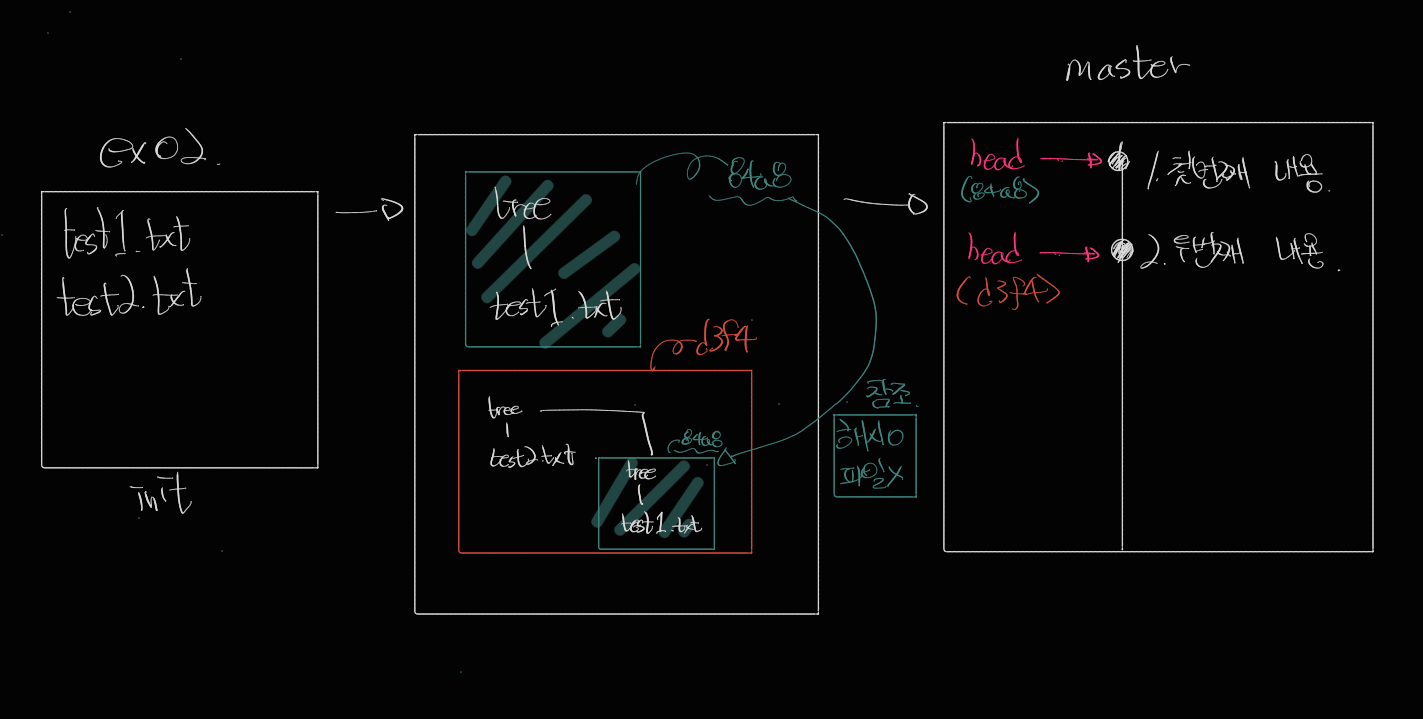 ex02.
test1.txt
test2.txt
init
84a8
tree
test1.txt
d3f4
tree
test2.txt
84a8
tree
test1.txt
참조
해시O
파일X
master
head
(84a8)
1. 첫번째 내용.
head
(d3f4)
2. 두번째 내용.